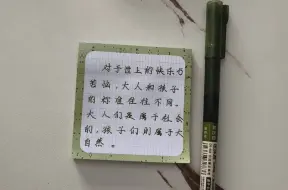 对于世上的快乐与
苦恼，大人和孩子
的标准往往不同。
大人们是属于社会
的，孩子们则属于大
自然。